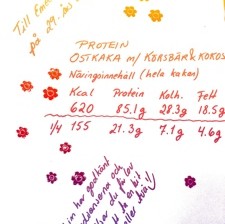 Till
på 29.
PROTEIN
OSTKAKA m/ KÖRSBÄR & KOKOS
Näringsinnehåll (hela kakan)
Kcal Protein Kolh. Fett
620 85.1g 28.3g 18.5g
1/4 155 21.3g 7.1g 4.6g
har godkänt
och
du får lov